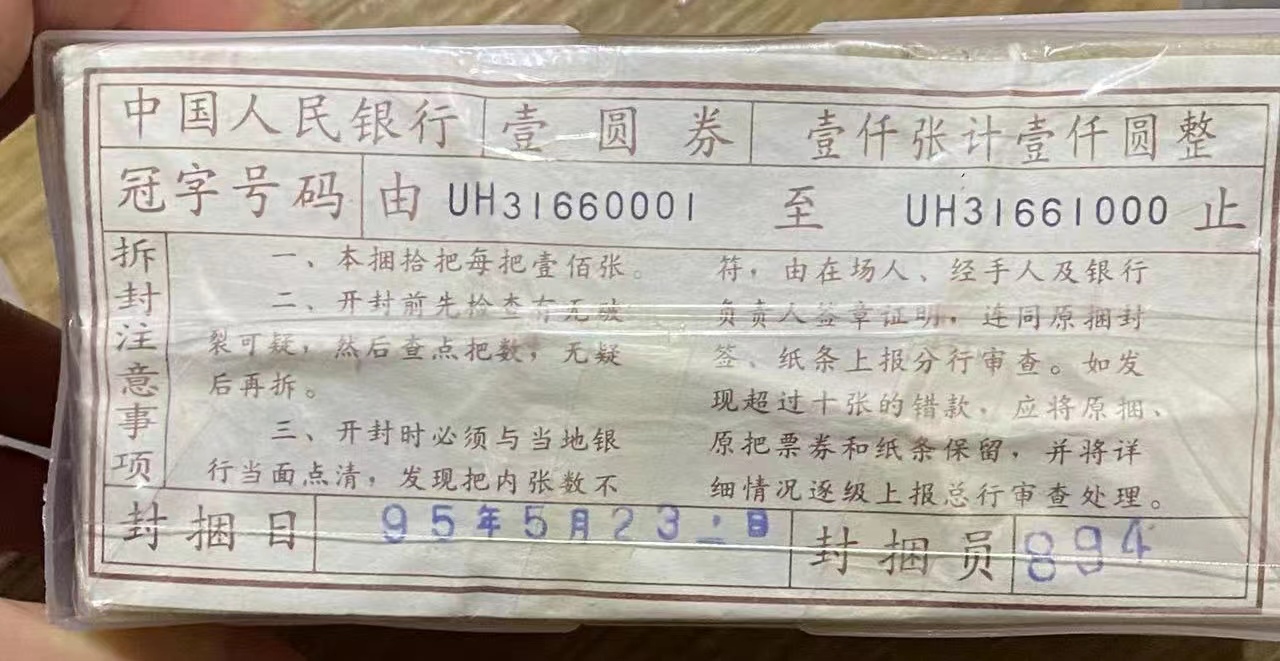 中国人民银行 壹圆券 壹仟张计壹仟圆整
冠字号码 由 UH31660001 至 UH31661000 止
拆封注意事项
一、本捆拾把每把壹佰张。
二、开封前先检查有无破
裂可疑，然后查点把数，无疑
后再拆。
三、开封时必须与当地银
行当面点清，发现把内张数不
符，由在场人、经手人及银行
负责人签章证明，连同原捆封
签、纸条上报分行审查。如发
现超过十张的错款，应将原捆、
原把票券和纸条保留，并将详
细情况逐级上报总行审查处理。
封捆日 95年5月23日 封捆员 894